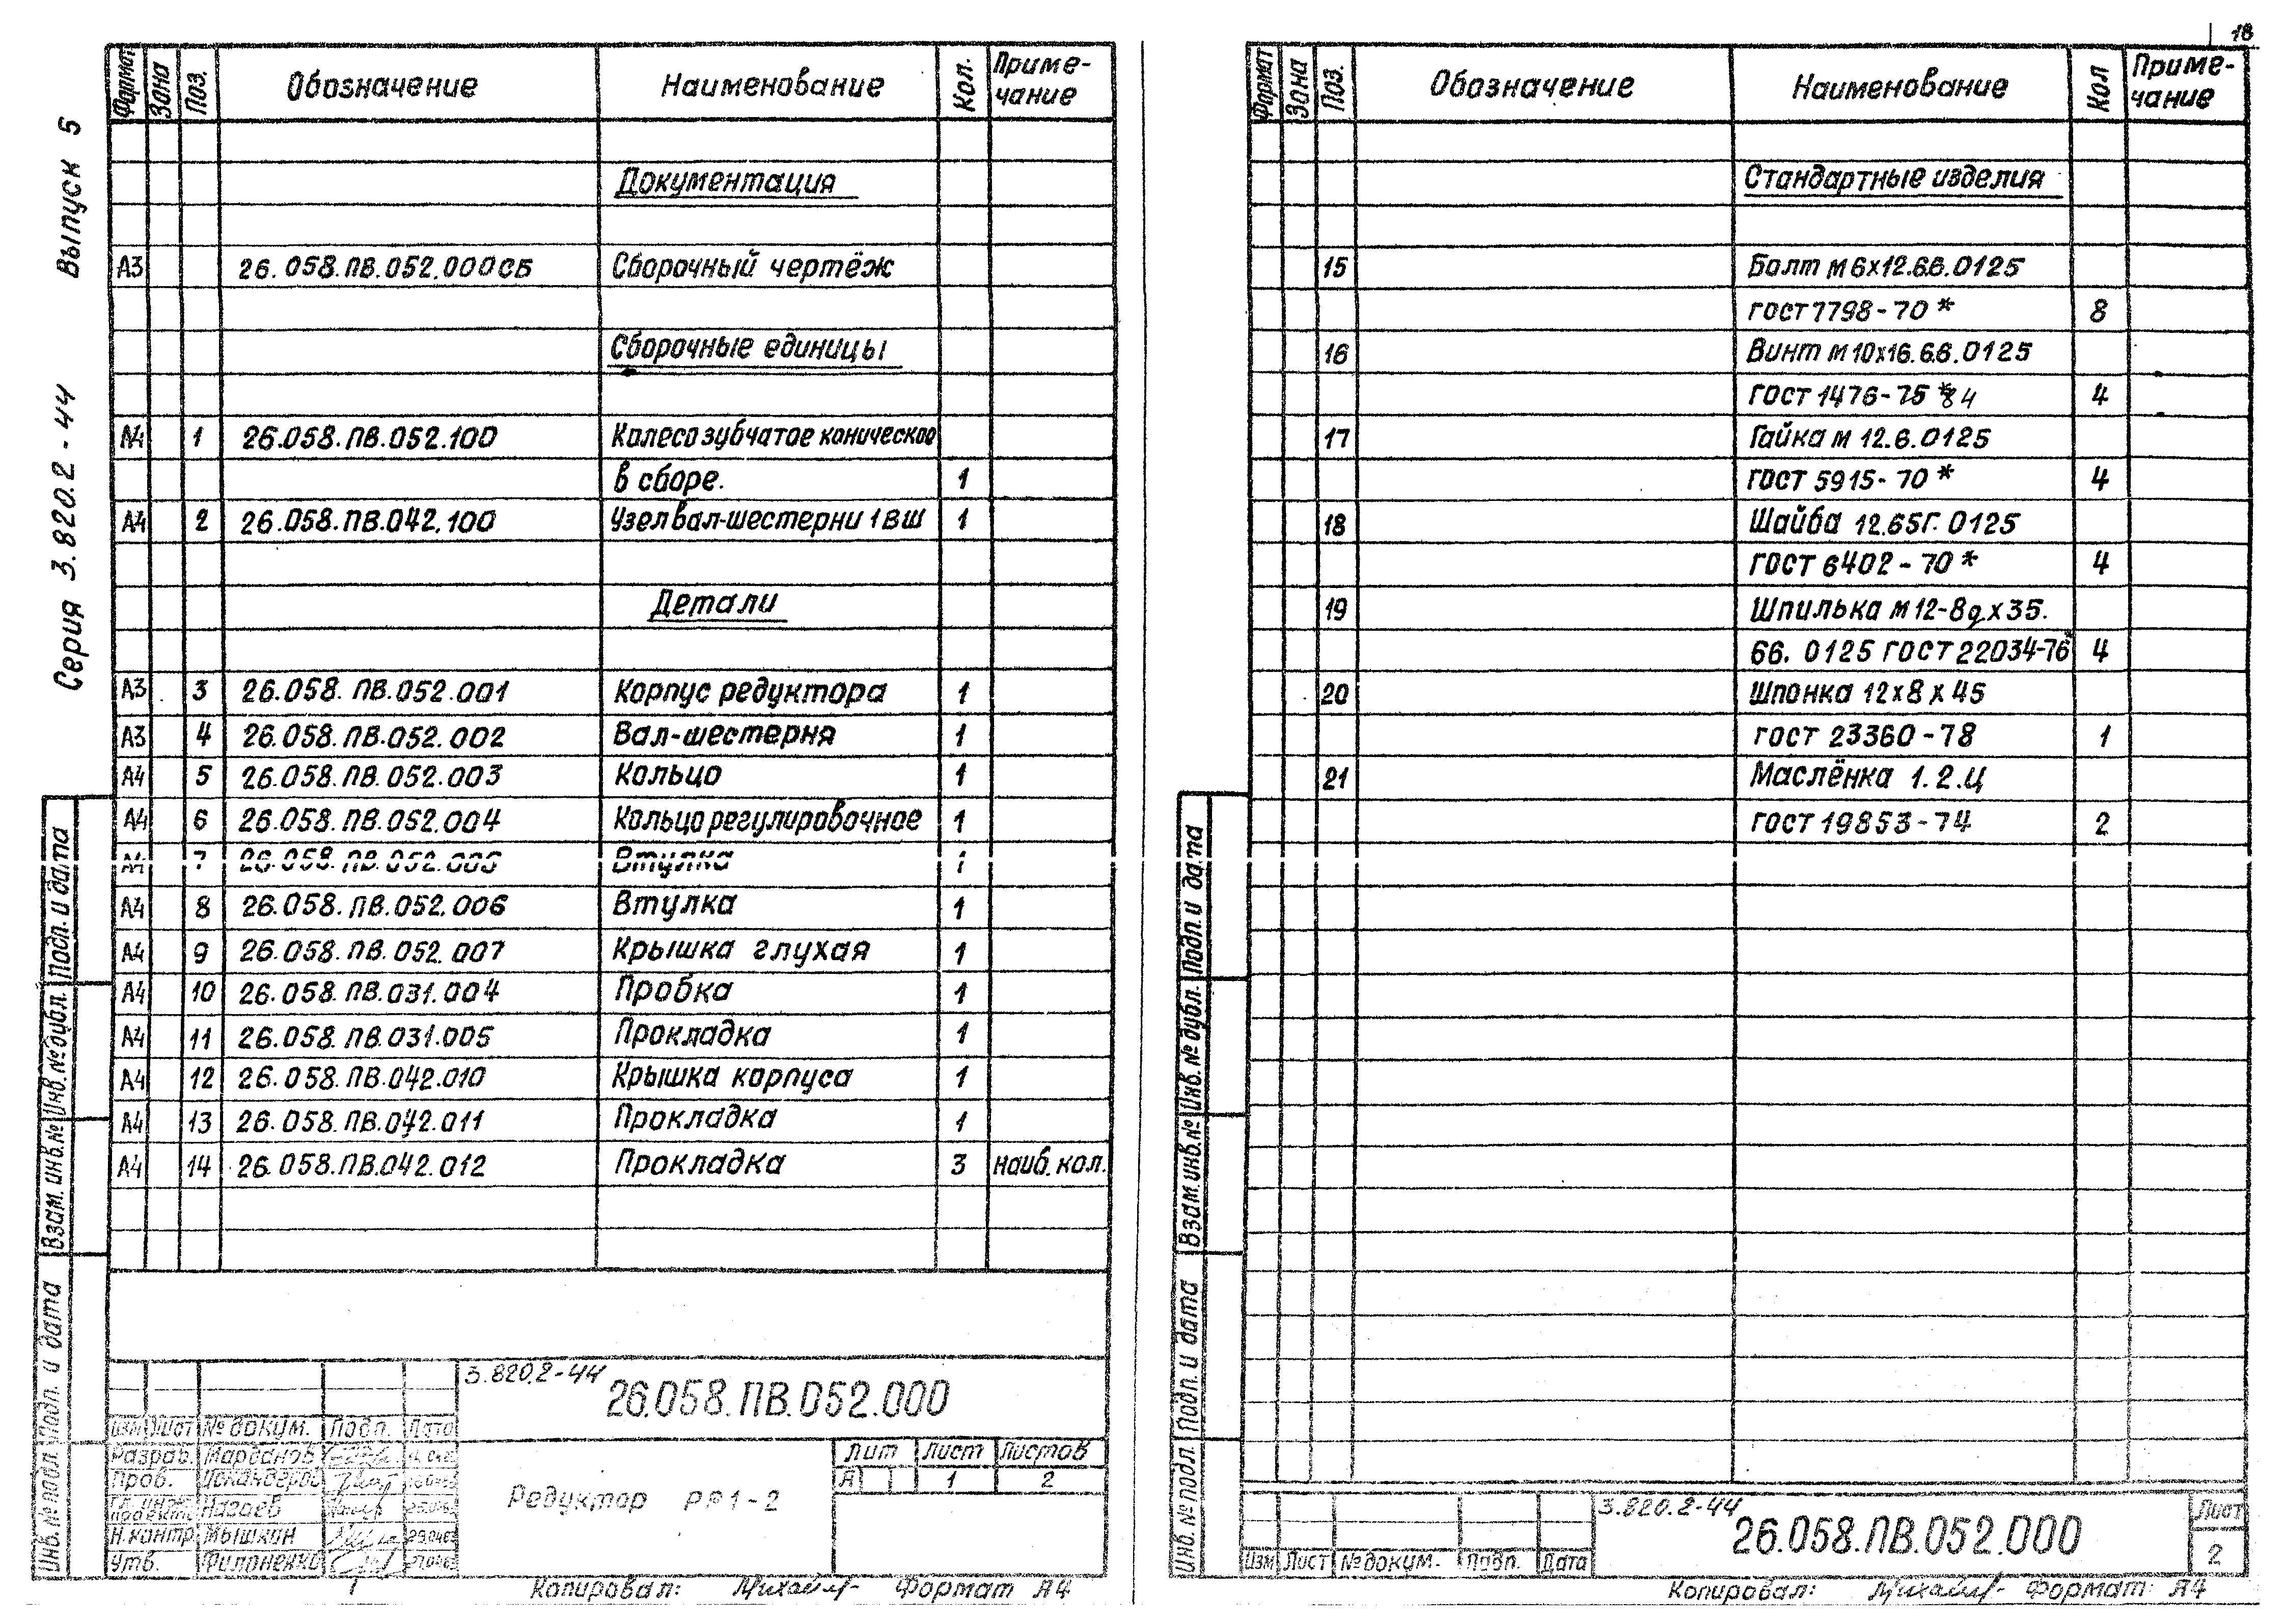 18
Выпуск 5
Серия 3.820.2-44
Формат Зона Поз. Обозначение Наименование Кол. Приме-
чание
Документация
А3 26.058.ПВ.052.000СБ Сборочный чертёж
Сборочные единицы
А4 1 26.058.ПВ.052.100 Колесо зубчатое коническое
в сборе. 1
А4 2 26.058.ПВ.042.100 Узел вал-шестерни 1ВШ 1
Детали
А3 3 26.058.ПВ.052.001 Корпус редуктора 1
А3 4 26.058.ПВ.052.002 Вал-шестерня 1
А4 5 26.058.ПВ.052.003 Кольцо 1
А4 6 26.058.ПВ.052.004 Кольцо регулировочное 1
А4 7 26.058.ПВ.052.005 Втулка 1
А4 8 26.058.ПВ.052.006 Втулка 1
А4 9 26.058.ПВ.052.007 Крышка глухая 1
А4 10 26.058.ПВ.031.004 Пробка 1
А4 11 26.058.ПВ.031.005 Прокладка 1
А4 12 26.058.ПВ.042.010 Крышка корпуса 1
А4 13 26.058.ПВ.042.011 Прокладка 1
А4 14 26.058.ПВ.042.012 Прокладка 3 наиб. кол.
Подп. и дата
Инв. № дубл.
Взам. инв. №
Подп. и дата
Инв. № подл.
3.820.2-44
26.058.ПВ.052.000
Изм Лист № докум. Подп. Дата
Разраб. Марданов
Пров. Искандеров
Гл. инж. проекта Нагаев
Н. контр. Мышкин
Утв. Филоненко
Редуктор РР1-2
Лит Лист Листов
А 1 2
Копировал: Формат А4
Формат Зона Поз. Обозначение Наименование Кол Приме-
чание
Стандартные изделия
15 Болт м6х12.6.8.0125
гост 7798-70* 8
16 Винт м10х16.6.8.0125
гост 1476-75 *84 4
17 Гайка м 12.6.0125
гост 5915-70* 4
18 Шайба 12.65Г.0125
гост 6402-70* 4
19 Шпилька м12-8gх35.
66. 0125 гост 22034-76* 4
20 Шпонка 12х8х45
гост 23360-78 1
21 Маслёнка 1.2.Ц
гост 19853-74 2
Подп. и дата
Инв. № дубл.
Взам. инв. №
Подп. и дата
Инв. № подл.
3.820.2-44
26.058.ПВ.052.000
Изм Лист № докум. Подп. Дата
Лист
2
Копировал: Формат А4